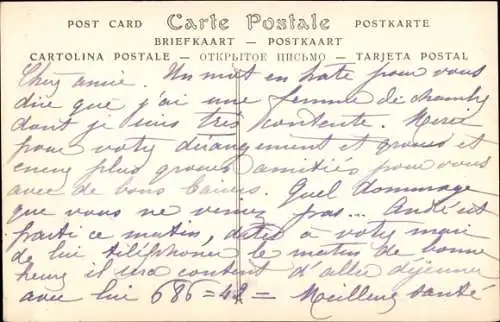 POST CARD Carte Postale POSTKARTE
BRIEFKAART — POSTKAART
CARTOLINA POSTALE — ОТКРЫТОЕ ПИСЬМО — TARJETA POSTAL
Chère amie. Un mot en hate pour vous
dire que j'ai une femme de chambre
dont je suis très contente. Merci
pour votre dérangement et grosses et
encore plus grosses amitiés pour vous
avec de bons baisers. Quel dommage
que vous ne veniez pas... André est
parti ce matin, dites à votre mari
de lui téléphoner le matin de bonne
heure il sera content d'aller déjeuner
avec lui 686=42= Meilleure santé